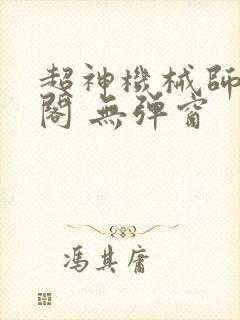 超神機械師
閣 無彈窗
馮其庸